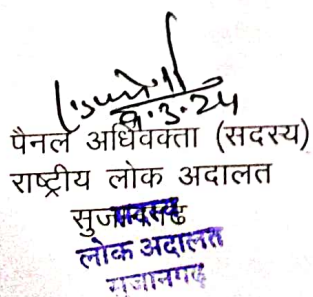 9.3.24
पैनल अधिवक्ता (सदस्य)
राष्ट्रीय लोक अदालत
सुजानगढ
सदस्य
लोक अदालत
सुजानगढ़